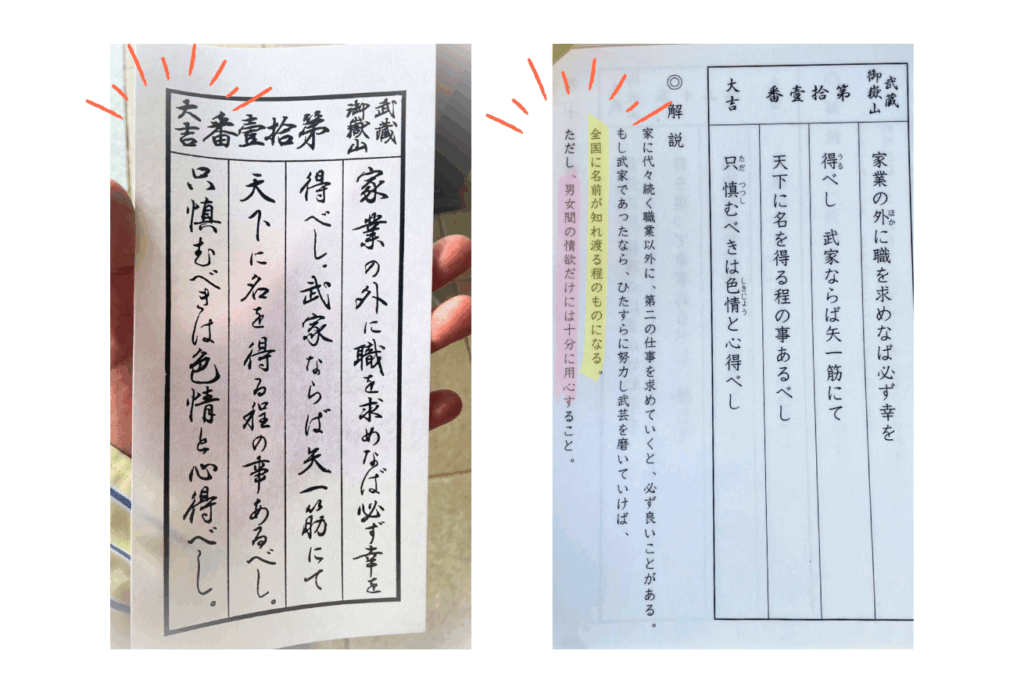 武蔵
御嶽山
第拾壹番
大吉
家業の外に職を求めなば必ず幸を
得べし、武家ならば矢一筋にて
天下に名を得る程の事あるべし。
只慎むべきは色情と心得べし。
武蔵
御嶽山
第拾壹番
大吉
家業の外に職を求めなば必ず幸を
ほか
得べし 武家ならば矢一筋にて
うる
天下に名を得る程の事あるべし
只慎むべきは色情と心得べし
ただ つつし しきじょう
◎解説
家に代々続く職業以外に、第二の仕事を求めていくと、必ず良いことがある。
もし武家であったなら、ひたすらに努力し武芸を磨いていけば、
全国に名前が知れ渡る程のものになる。
ただし、男女間の情欲だけには十分に用心すること。